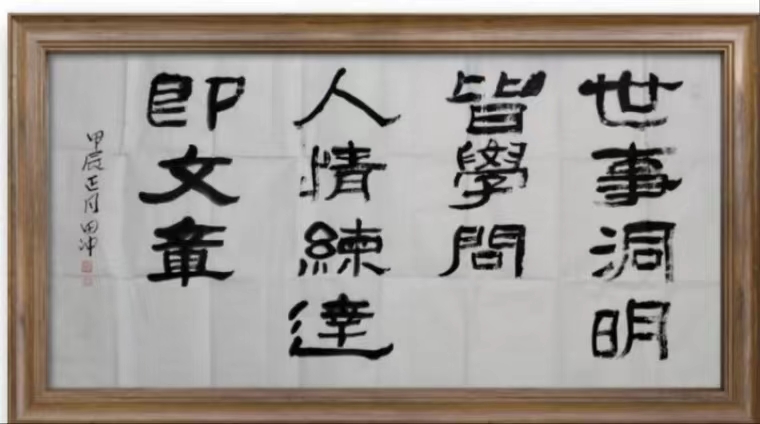 世事洞明
皆學問
人情練達
即文章
甲辰正月 田冲